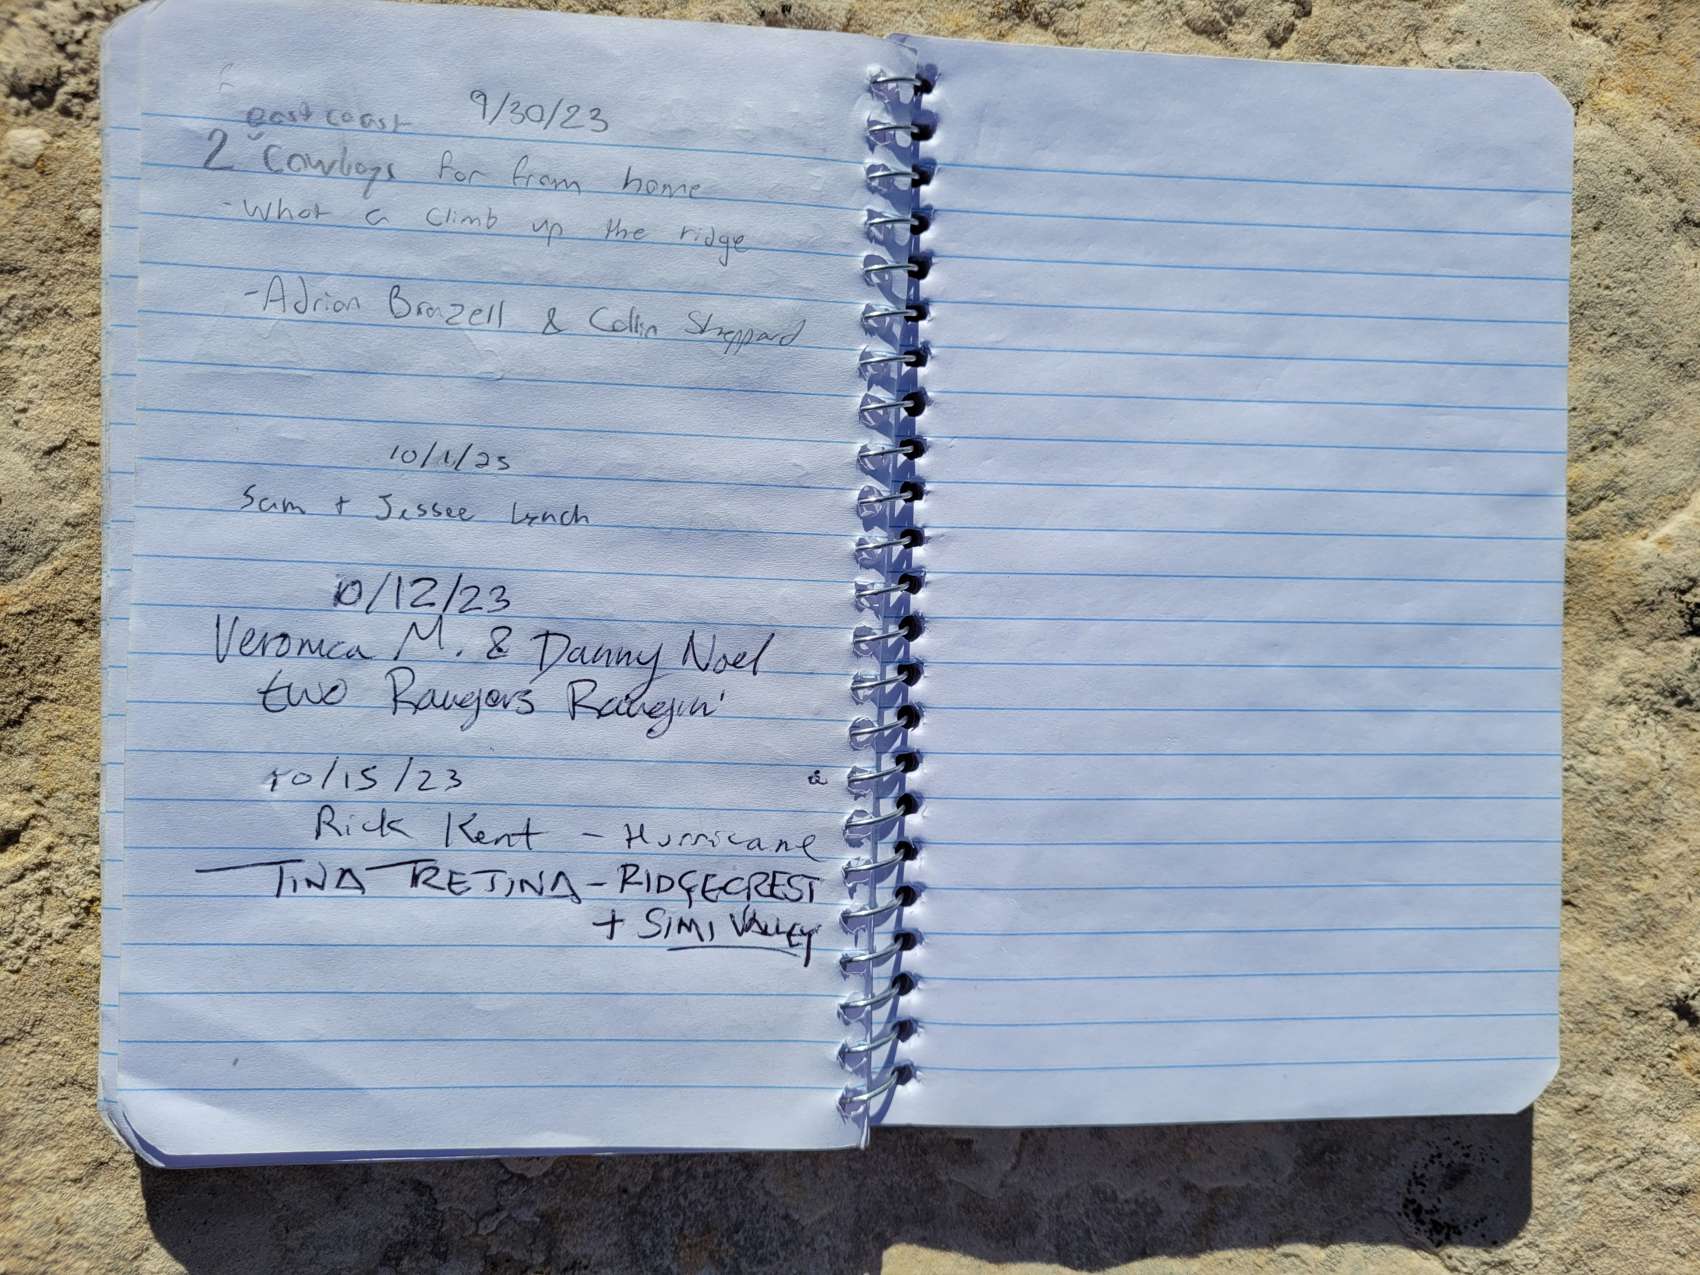 9/30/23
east coast
2 Cowboys for from home
- What a climb up the ridge
- Adrian Brazell & Collin Sheppard
10/1/23
Sam + Jessee Lynch
10/12/23
Veronica M. & Danny Noel
two Rangers Rangin'
10/15/23
Rick Kent - Hurricane
TINA TREJINA - RIDGECREST
+ SIMI VALLEY